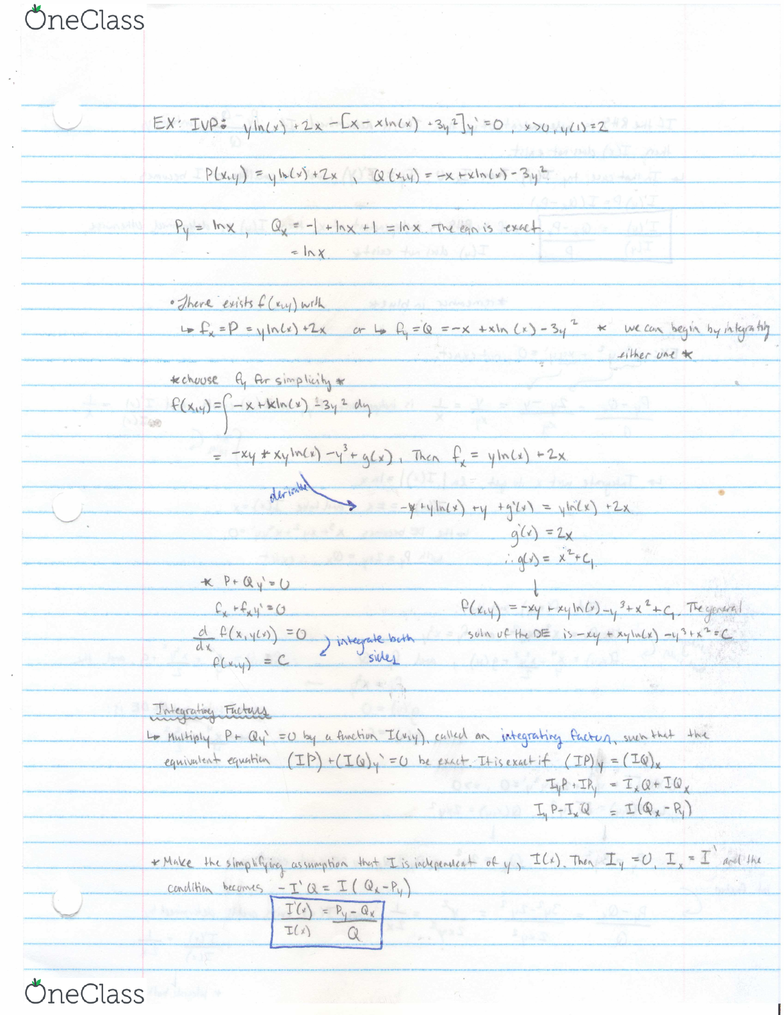 OneClass
EX: IVP: yln(x) + 2x - [x - xln(x) + 3y²]y' = 0, x>0, y(1) = 2
P(x,y) = yln(x) + 2x, Q(x,y) = -x + xln(x) - 3y²
Py = lnx, Qx = -1 + lnx + 1 = lnx. The eqn is exact.
= lnx.
• There exists f(x,y) with
↳ fx = P = yln(x) + 2x or ↳ fy = Q = -x + xln(x) - 3y² * we can begin by integrating
either one *
* choose fy for simplicity *
f(x,y) = ∫ -x + xln(x) - 3y² dy
= -xy + xyln(x) - y³ + g(x). Then fx = yln(x) + 2x
derivative
-y + yln(x) + y + g'(x) = yln(x) + 2x
g'(x) = 2x
∴ g(x) = x² + C₁
* P + Qy' = 0
fx + fy y' = 0
f(x,y) = -xy + xyln(x) - y³ + x² + C₁. The general
d/dx f(x,y(x)) = 0
integrate both
soln of the DE is -xy + xyln(x) - y³ + x² = C
sides
f(x,y) = C
Integrating Factors
↳ Multiply P + Qy' = 0 by a function I(x,y), called an integrating factor, such that the
equivalent equation (IP) + (IQ)y' = 0 be exact. It is exact if (IP)y = (IQ)x
IyP + IPy = IxQ + IQx
IyP - IxQ = I(Qx - Py)
* Make the simplifying assumption that I is independent of y, I(x). Then Iy = 0, Ix = I' and the
condition becomes -I'Q = I(Qx - Py)
I'(x)/I(x) = Py - Qx/Q
OneClass